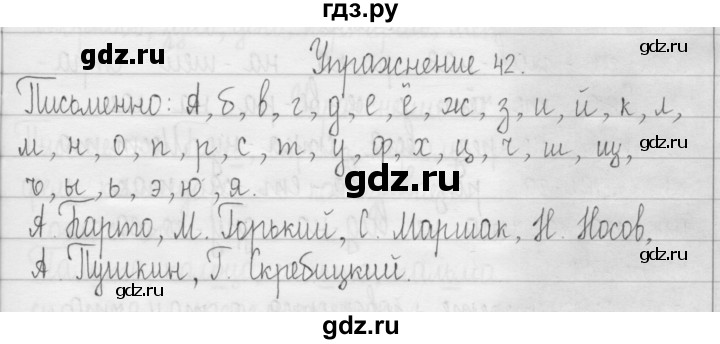 гдз.ру
gdz.ru gdz.ru
Упражнение 42.
Письменно: А, б, в, г, д, е, ё, ж, з, и, й, к, л,
м, н, о, п, р, с, т, у, ф, х, ц, ч, ш, щ,
gdz.ru
ъ, ы, ь, э, ю, я.
gdz.ru
А. Барто, М. Горький, С. Маршак, Н. Носов,
А. Пушкин, Г. Скребицкий.
gdz.ru gdz.ru
gdz.ru